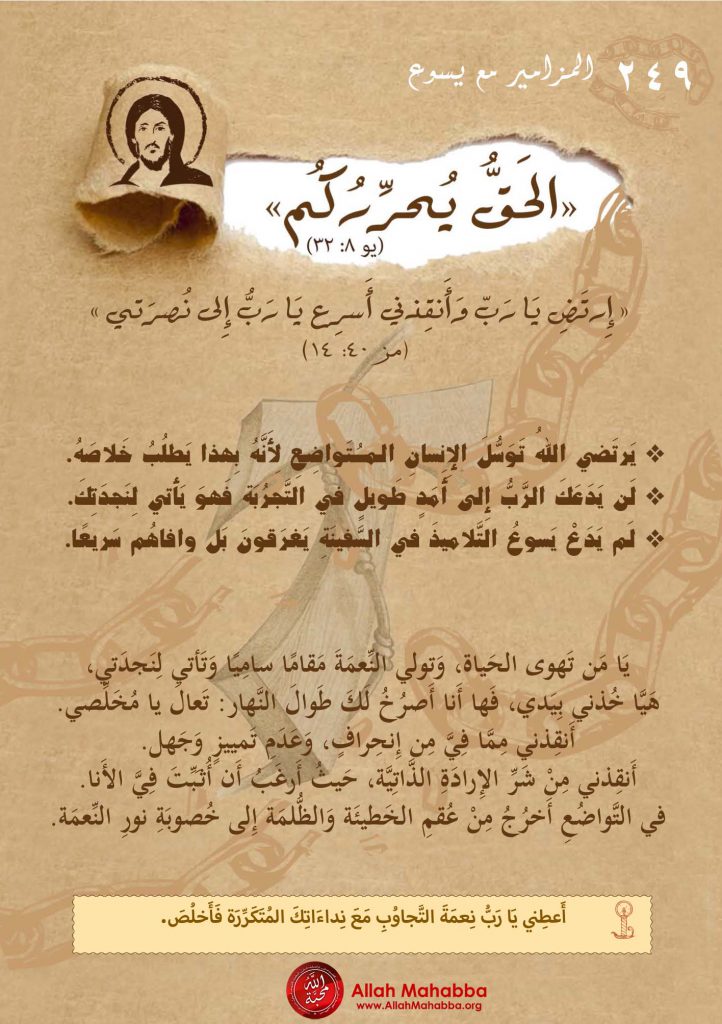 ٢٤٩ المزامير مع يسوع
«الحَقُّ يُحرِّرُكُم»
(يو ٨: ٣٢)
« إِرتَضِ يَا رَبّ وَأَنقِذني أَسرِع يَا رَبُّ إِلى نُصرَتي »
(مز ٤٠: ١٤)
❖ يَرتَضي اللهُ تَوَسُّلَ الإِنسانِ المـُتَواضِعِ لأَنَّهُ بِهذا يَطلُبُ خَلاصَهُ.
❖ لَن يَدَعَكَ الرَّبُّ إِلى أَمَدٍ طَويلٍ في التَّجرُبَة فَهوَ يَأتي لِنَجدَتِكَ.
❖ لَم يَدَعْ يَسوعُ التَّلاميذَ في السَّفينَةِ يَغرَقونَ بَل وافاهُم سَريعًا.
يَا مَن تَهوى الحَياة، وَتولي النِّعمَةَ مَقامًا سامِيًا وَتَأتي لِنَجدَتي،
هَيَّا خُذني بِيَدي، فَها أَنا أَصرُخُ لَكَ طَوالَ النَّهار: تَعالَ يا مُخَلِّصي.
أَنقِذني مِمَّا فِيَّ مِن إِنحِرافٍ، وَعَدَمِ تَمييزٍ وَجَهل.
أَنقِذني مِنْ شَرِّ الإِرادَةِ الذَّاتِيَّة، حَيثُ أَرغَبُ أَن أُثَبِّتَ فِيَّ الأَنا.
في التَّواضُعِ أَخرُجُ مِنْ عُقمِ الخَطيئَة وَالظُّلمَة إِلى خُصوبَةِ نورِ النِّعمَة.
أَعطِني يَا رَبُّ نِعمَةَ التَّجاوُبِ مَعَ نِداءَاتِكَ المُتَكَرِّرَة فَأَخلُصَ.
الله محبة
Allah Mahabba
www.AllahMahabba.org